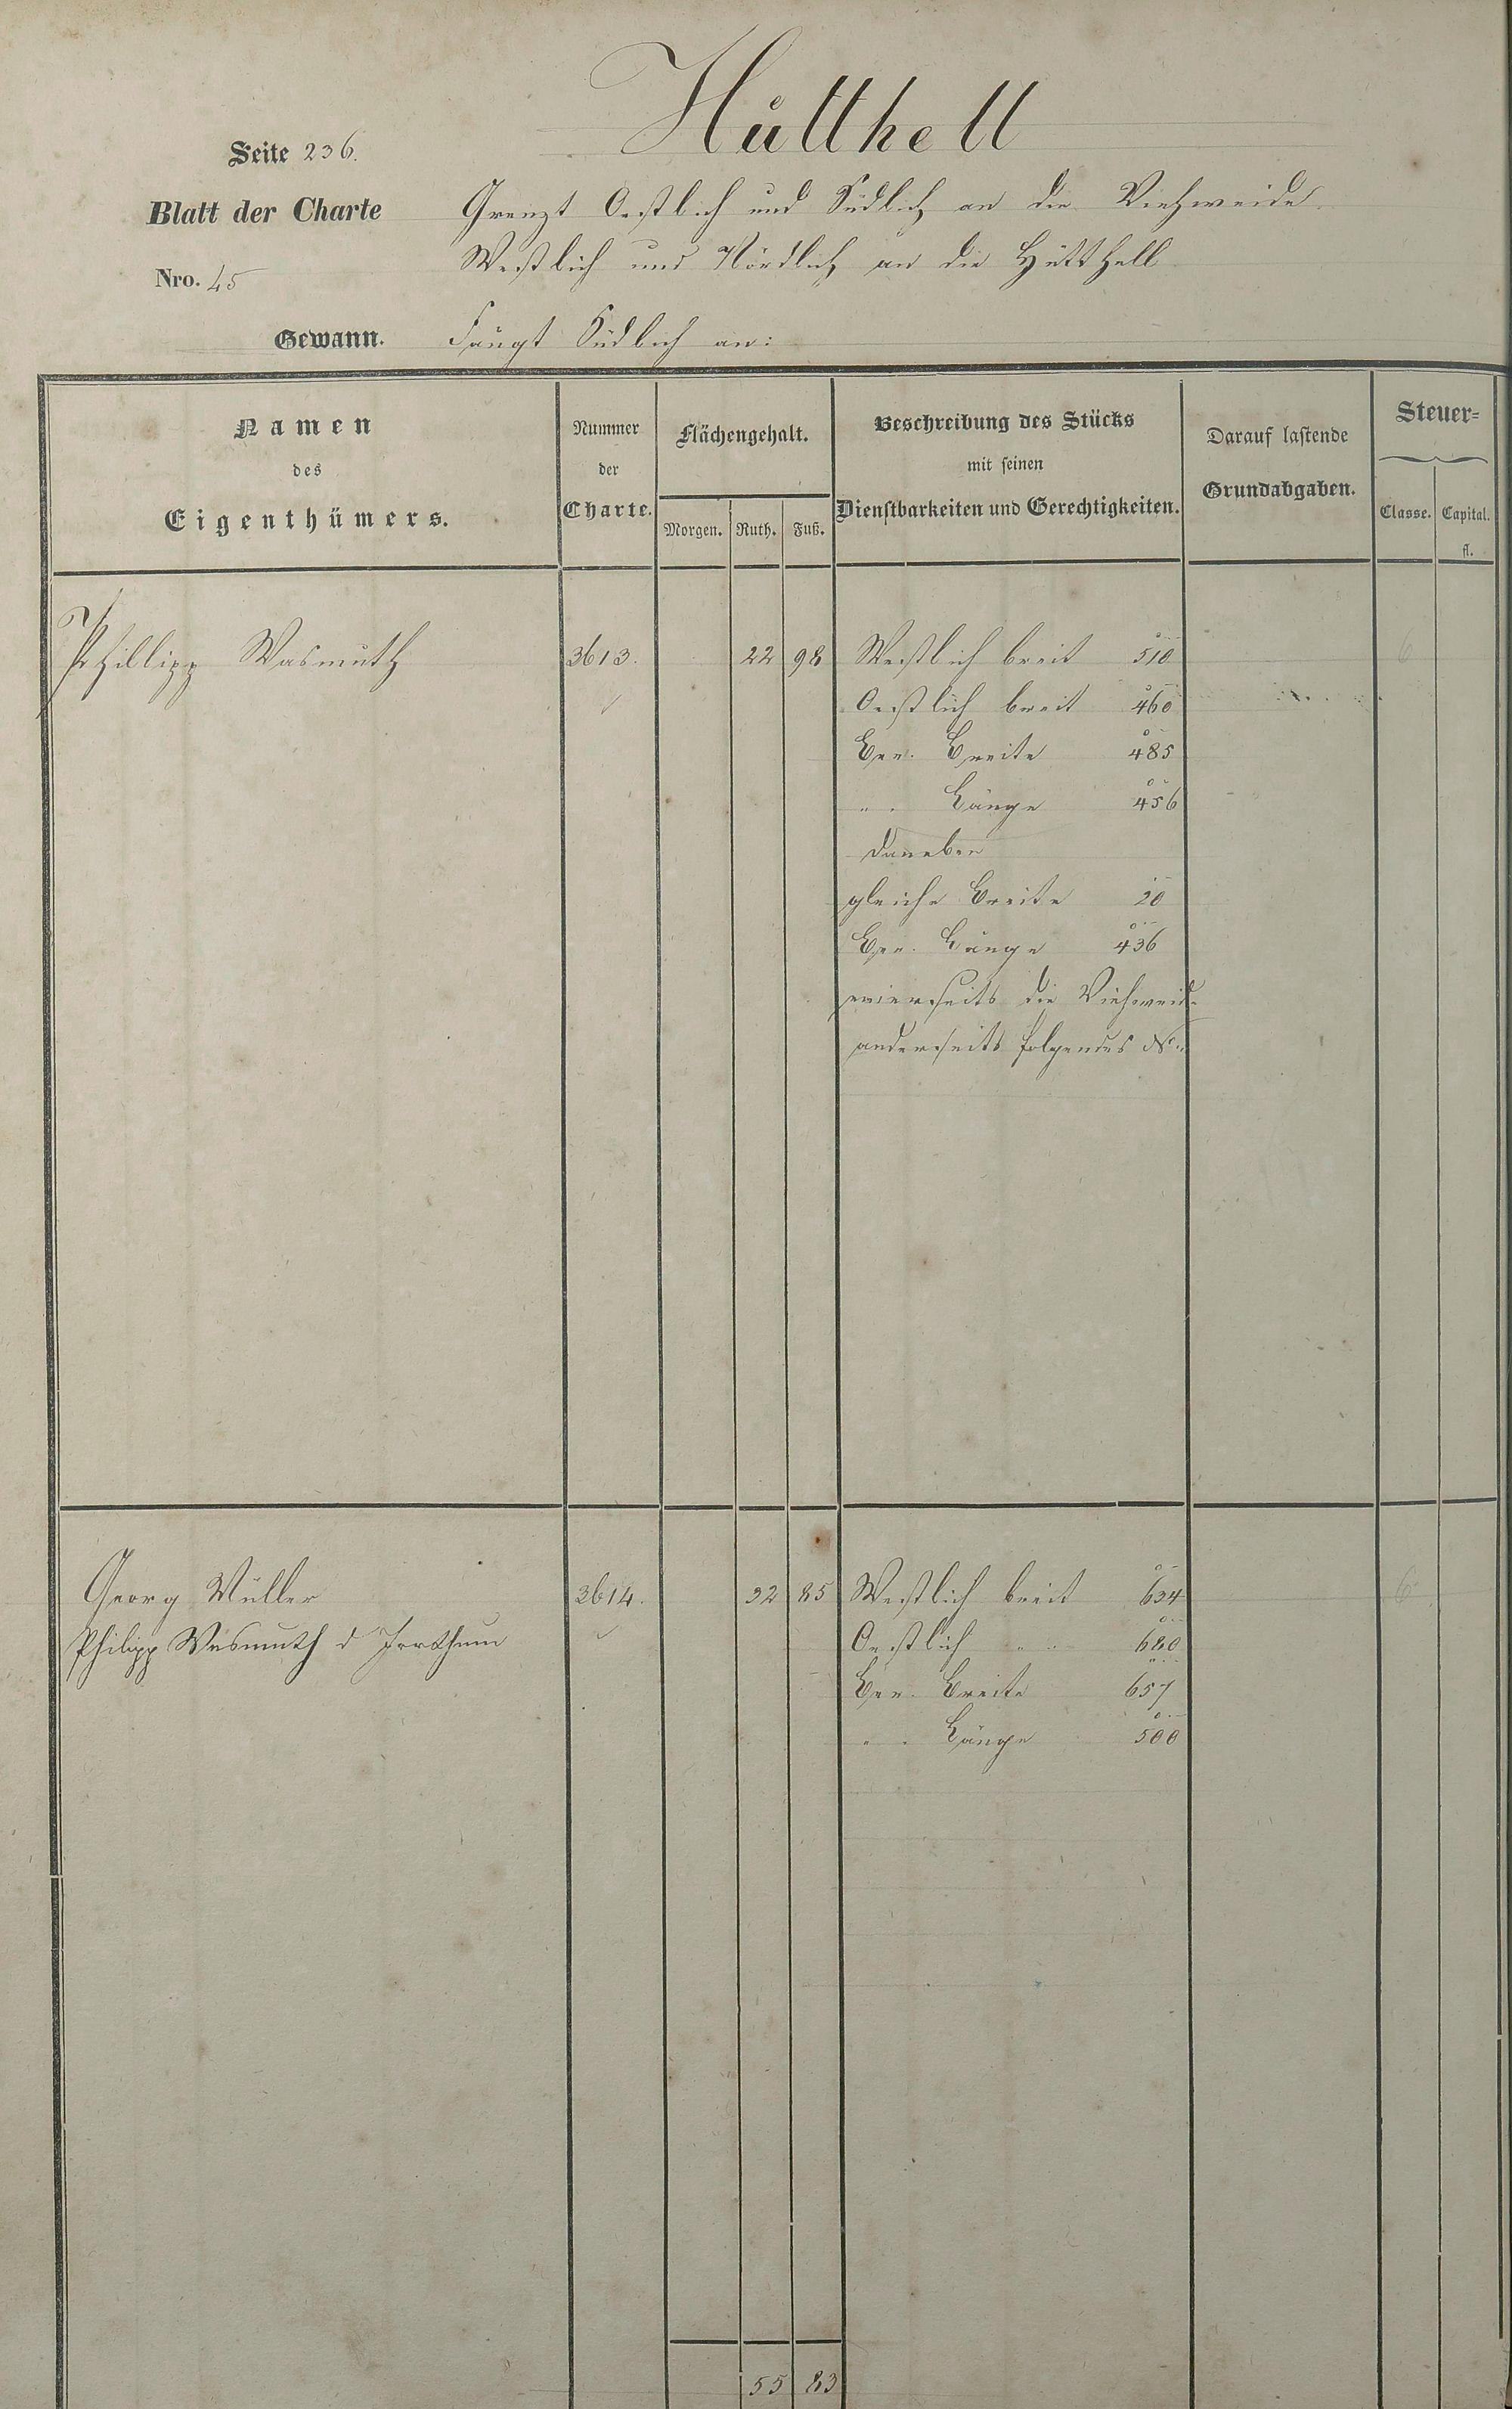 Hütthell
Seite 236.
Blatt der Charte
Grenzt Oestlich und Südlich an die Viehweide
Westlich und Nördlich an die Hütthell
Nro. 45
Gewann.
Fängt Südlich an:
Namen
des
Eigenthümers.
Nummer
der
Charte.
Flächengehalt.
Morgen.
Ruth.
Fuß.
Beschreibung des Stücks
mit seinen
Dienstbarkeiten und Gerechtigkeiten.
Darauf lastende
Grundabgaben.
Steuer=
Classe.
Capital.
fl.
Phillipp Wasmuth
3613.
22
98
Westlich breit 510
6
Oestlich breit 460
Ger. Breite 485
" " Länge 456
Daneben
gleiche Breite 20
Ger. Länge 436
einerseits die Viehweid
anderseits folgendes No.
Georg Müller
3614.
32
85
Westlich breit 634
6
Philipp Wasmuth d Irrthum
Oestlich " " 680
Ger. Breite 657
" " Länge 500
55
83